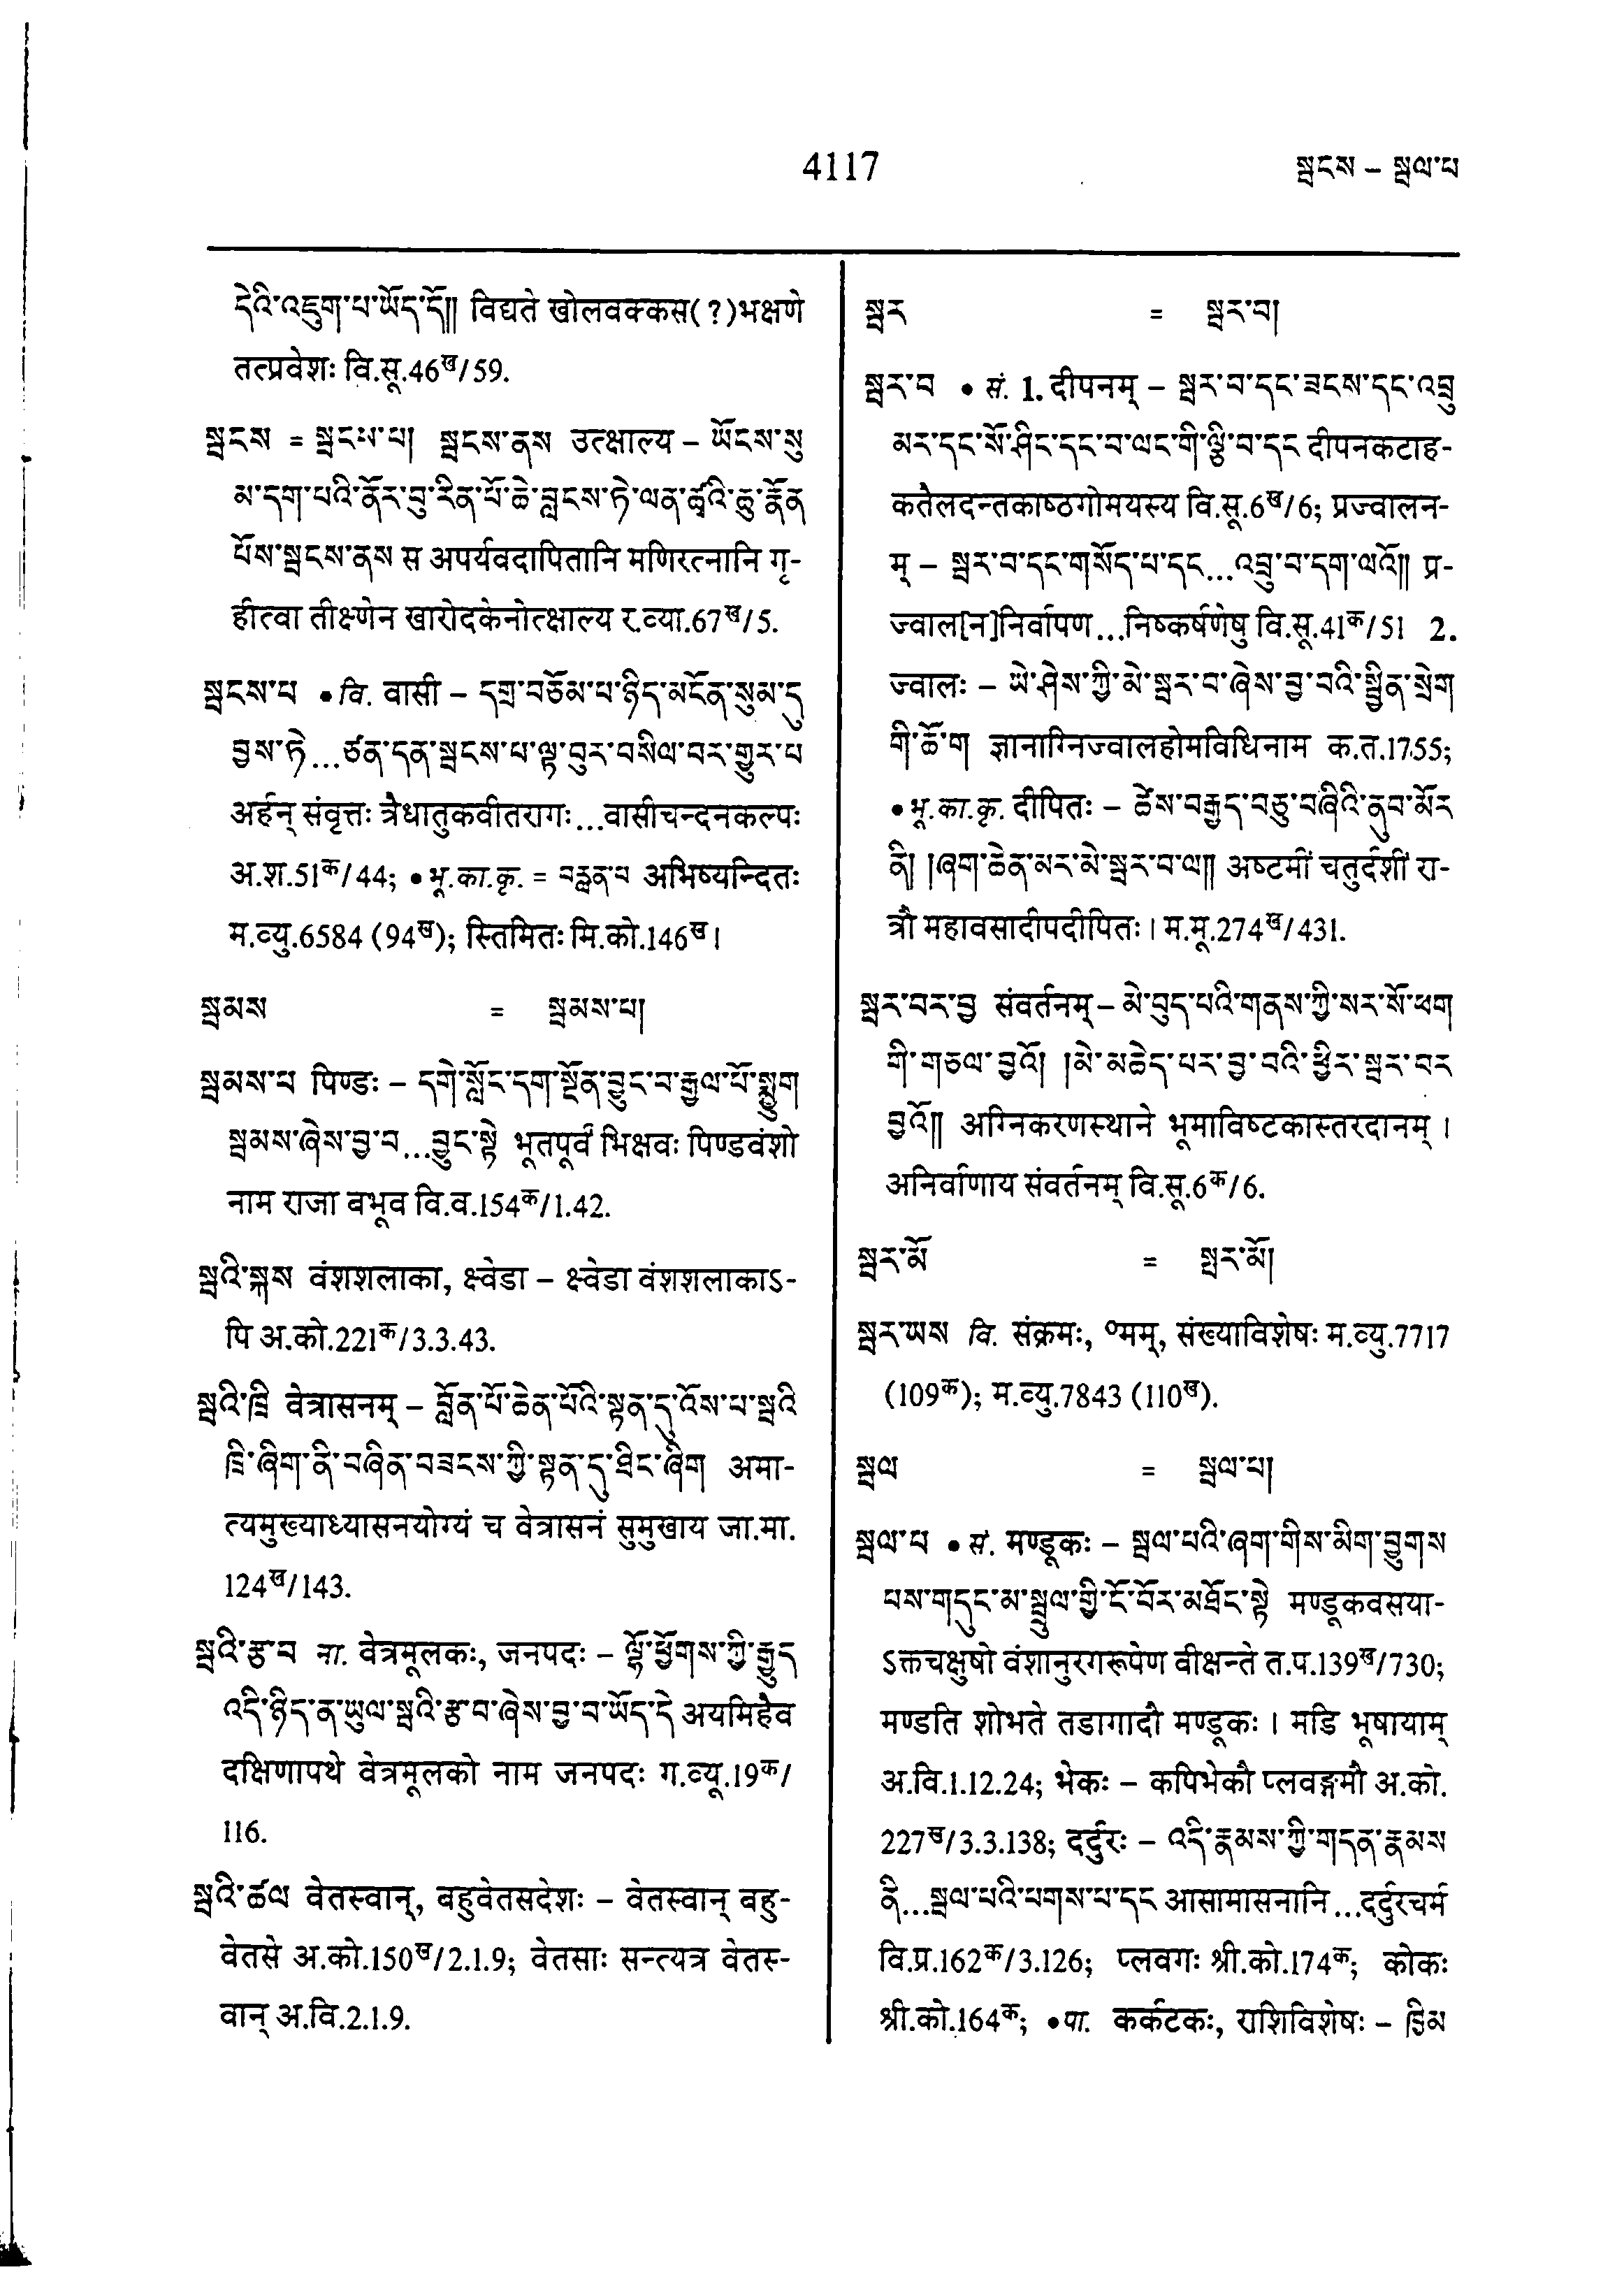 4117
སྦངས – སྦལ་པ
དེའི་འཇུག་པ་ཡོད་དོ།། विद्यते खोलवक्कस(?)भक्षणे
तत्प्रवेशः वि.सू.46ख/59.
སྦངས = སྦངས་པ། སྦངས་ནས उत्क्षाल्य – ཡོངས་སུ
མ་དག་པའི་ནོར་བུ་རིན་པོ་ཆེ་བླངས་ཏེ་ལན་ཚྭའི་ཆུ་རྣོན
པོས་སྦངས་ནས स अपर्यवदापितानि मणिरत्नानि गृ-
हीत्वा तीक्ष्णेन खारोदकेनोत्क्षाल्य र.व्या.67ख/5.
སྦངས་པ • वि. वासी – དགྲ་བཅོམ་པ་ཉིད་མངོན་སུམ་དུ
བྱས་ཏེ...ཙན་དན་སྦངས་པ་ལྟ་བུར་བསིལ་བར་གྱུར་པ
अर्हन् संवृत्तः त्रैधातुकवीतरागः...वासीचन्दनकल्पः
अ.श.51क/44; • भू.का.कृ. = བརླན་པ अभिष्यन्दितः
म.व्यु.6584 (94ख); स्तिमितः मि.को.146ख।
སྦམས = སྦམས་པ།
སྦམས་པ पिण्डः – དགེ་སློང་དག་སྔོན་བྱུང་བ་རྒྱལ་པོ་སྨྱུག
སྦམས་ཞེས་བྱ་བ...བྱུང་སྟེ भूतपूर्वं भिक्षवः पिण्डवंशो
नाम राजा बभूव वि.व.154क/1.42.
སྦའི་སྐས वंशशलाका, क्ष्वेडा – क्ष्वेडा वंशशलाकाऽ-
पि अ.को.221क/3.3.43.
སྦའི་ཁྲི वेत्रासनम् – བློན་པོ་ཆེན་པོའི་སྟན་དུ་འོས་པ་སྦའི
ཁྲི་ཞིག་ནི་བཞིན་བཟངས་ཀྱི་སྟན་དུ་ཐིང་ཞིག अमा-
त्यमुख्याध्यासनयोग्यं च वेत्रासनं सुमुखाय जा.मा.
124ख/143.
སྦའི་རྩ་བ ना. वेत्रमूलकः, जनपदः – ལྷོ་ཕྱོགས་ཀྱི་རྒྱུད
འདི་ཉིད་ན་ཡུལ་སྦའི་རྩ་བ་ཞེས་བྱ་བ་ཡོད་དེ अयमिहैव
दक्षिणापथे वेत्रमूलको नाम जनपदः ग.व्यू.19क/
116.
སྦའི་ཚལ वेतस्वान्, बहुवेतसदेशः – वेतस्वान् बहु-
वेतसे अ.को.150ख/2.1.9; वेतसाः सन्त्यत्र वेतस्-
वान् अ.वि.2.1.9.
སྦར = སྦར་བ།
སྦར་བ • सं. 1. दीपनम् – སྦར་བ་དང་ཟངས་དང་འབྲུ
མར་དང་སོ་ཤིང་དང་བ་ལང་གི་ལྕི་བ་དང दीपनकटाह-
कतैलदन्तकाष्ठगोमयस्य वि.सू.6ख/6; प्रज्वालन-
म् – སྦར་བ་དང་གསོད་པ་དང...འབྲུ་བ་དག་ལའོ།། प्र-
ज्वाल[न]निर्वापण...निष्कर्षणेषु वि.सू.41क/51 2.
ज्वालः – ཡེ་ཤེས་ཀྱི་མེ་སྦར་བ་ཞེས་བྱ་བའི་སྦྱིན་སྲེག
གི་ཆོ་ག ज्ञानाग्निज्वालहोमविधिनाम क.त.1755;
• भू.का.कृ. दीपितः – ཚེས་བརྒྱད་བཅུ་བཞིའི་ནུབ་མོར
ནི། །ཞག་ཆེན་མར་མེ་སྦར་བ་ལ།། अष्टमीं चतुर्दशीं रा-
त्रौ महावसादीपदीपितः। म.मू.274ख/431.
སྦར་བར་བྱ संवर्तनम् – མེ་བུད་པའི་གནས་ཀྱི་སར་སོ་ཕག
གི་གཅལ་བྱའོ། །མེ་མཆེད་པར་བྱ་བའི་ཕྱིར་སྦར་བར
བྱའོ།། अग्निकरणस्थाने भूमाविष्टकास्तरदानम्।
अनिर्वाणाय संवर्तनम् वि.सू.6क/6.
སྦར་མོ = སྤར་མོ།
སྦར་ཡས वि. संक्रमः, ०मम्, संख्याविशेषः म.व्यु.7717
(109क); म.व्यु.7843 (110ख).
སྦལ = སྦལ་པ།
སྦལ་པ • सं. मण्डूकः – སྦལ་པའི་ཞག་གིས་མིག་བྱུགས
པས་གདུང་མ་སྦྲུལ་གྱི་ངོ་བོར་མཐོང་སྟེ मण्डूकवसया-
ऽक्तचक्षुषो वंशानुरगरूपेण वीक्षन्ते त.प.139ख/730;
मण्डति शोभते तडागादौ मण्डूकः। मडि भूषायाम्
अ.वि.1.12.24; भेकः – कपिभेकौ प्लवङ्गमौ अ.को.
227ख/3.3.138; दर्दुरः – འདི་རྣམས་ཀྱི་གདན་རྣམས
ནི...སྦལ་པའི་པགས་པ་དང आसामासनानि...दर्दुरचर्म
वि.प्र.162क/3.126; प्लवगः श्री.को.174क; कोकः
श्री.को.164क; • पा. कर्कटकः, राशिविशेषः – ཁྱིམ